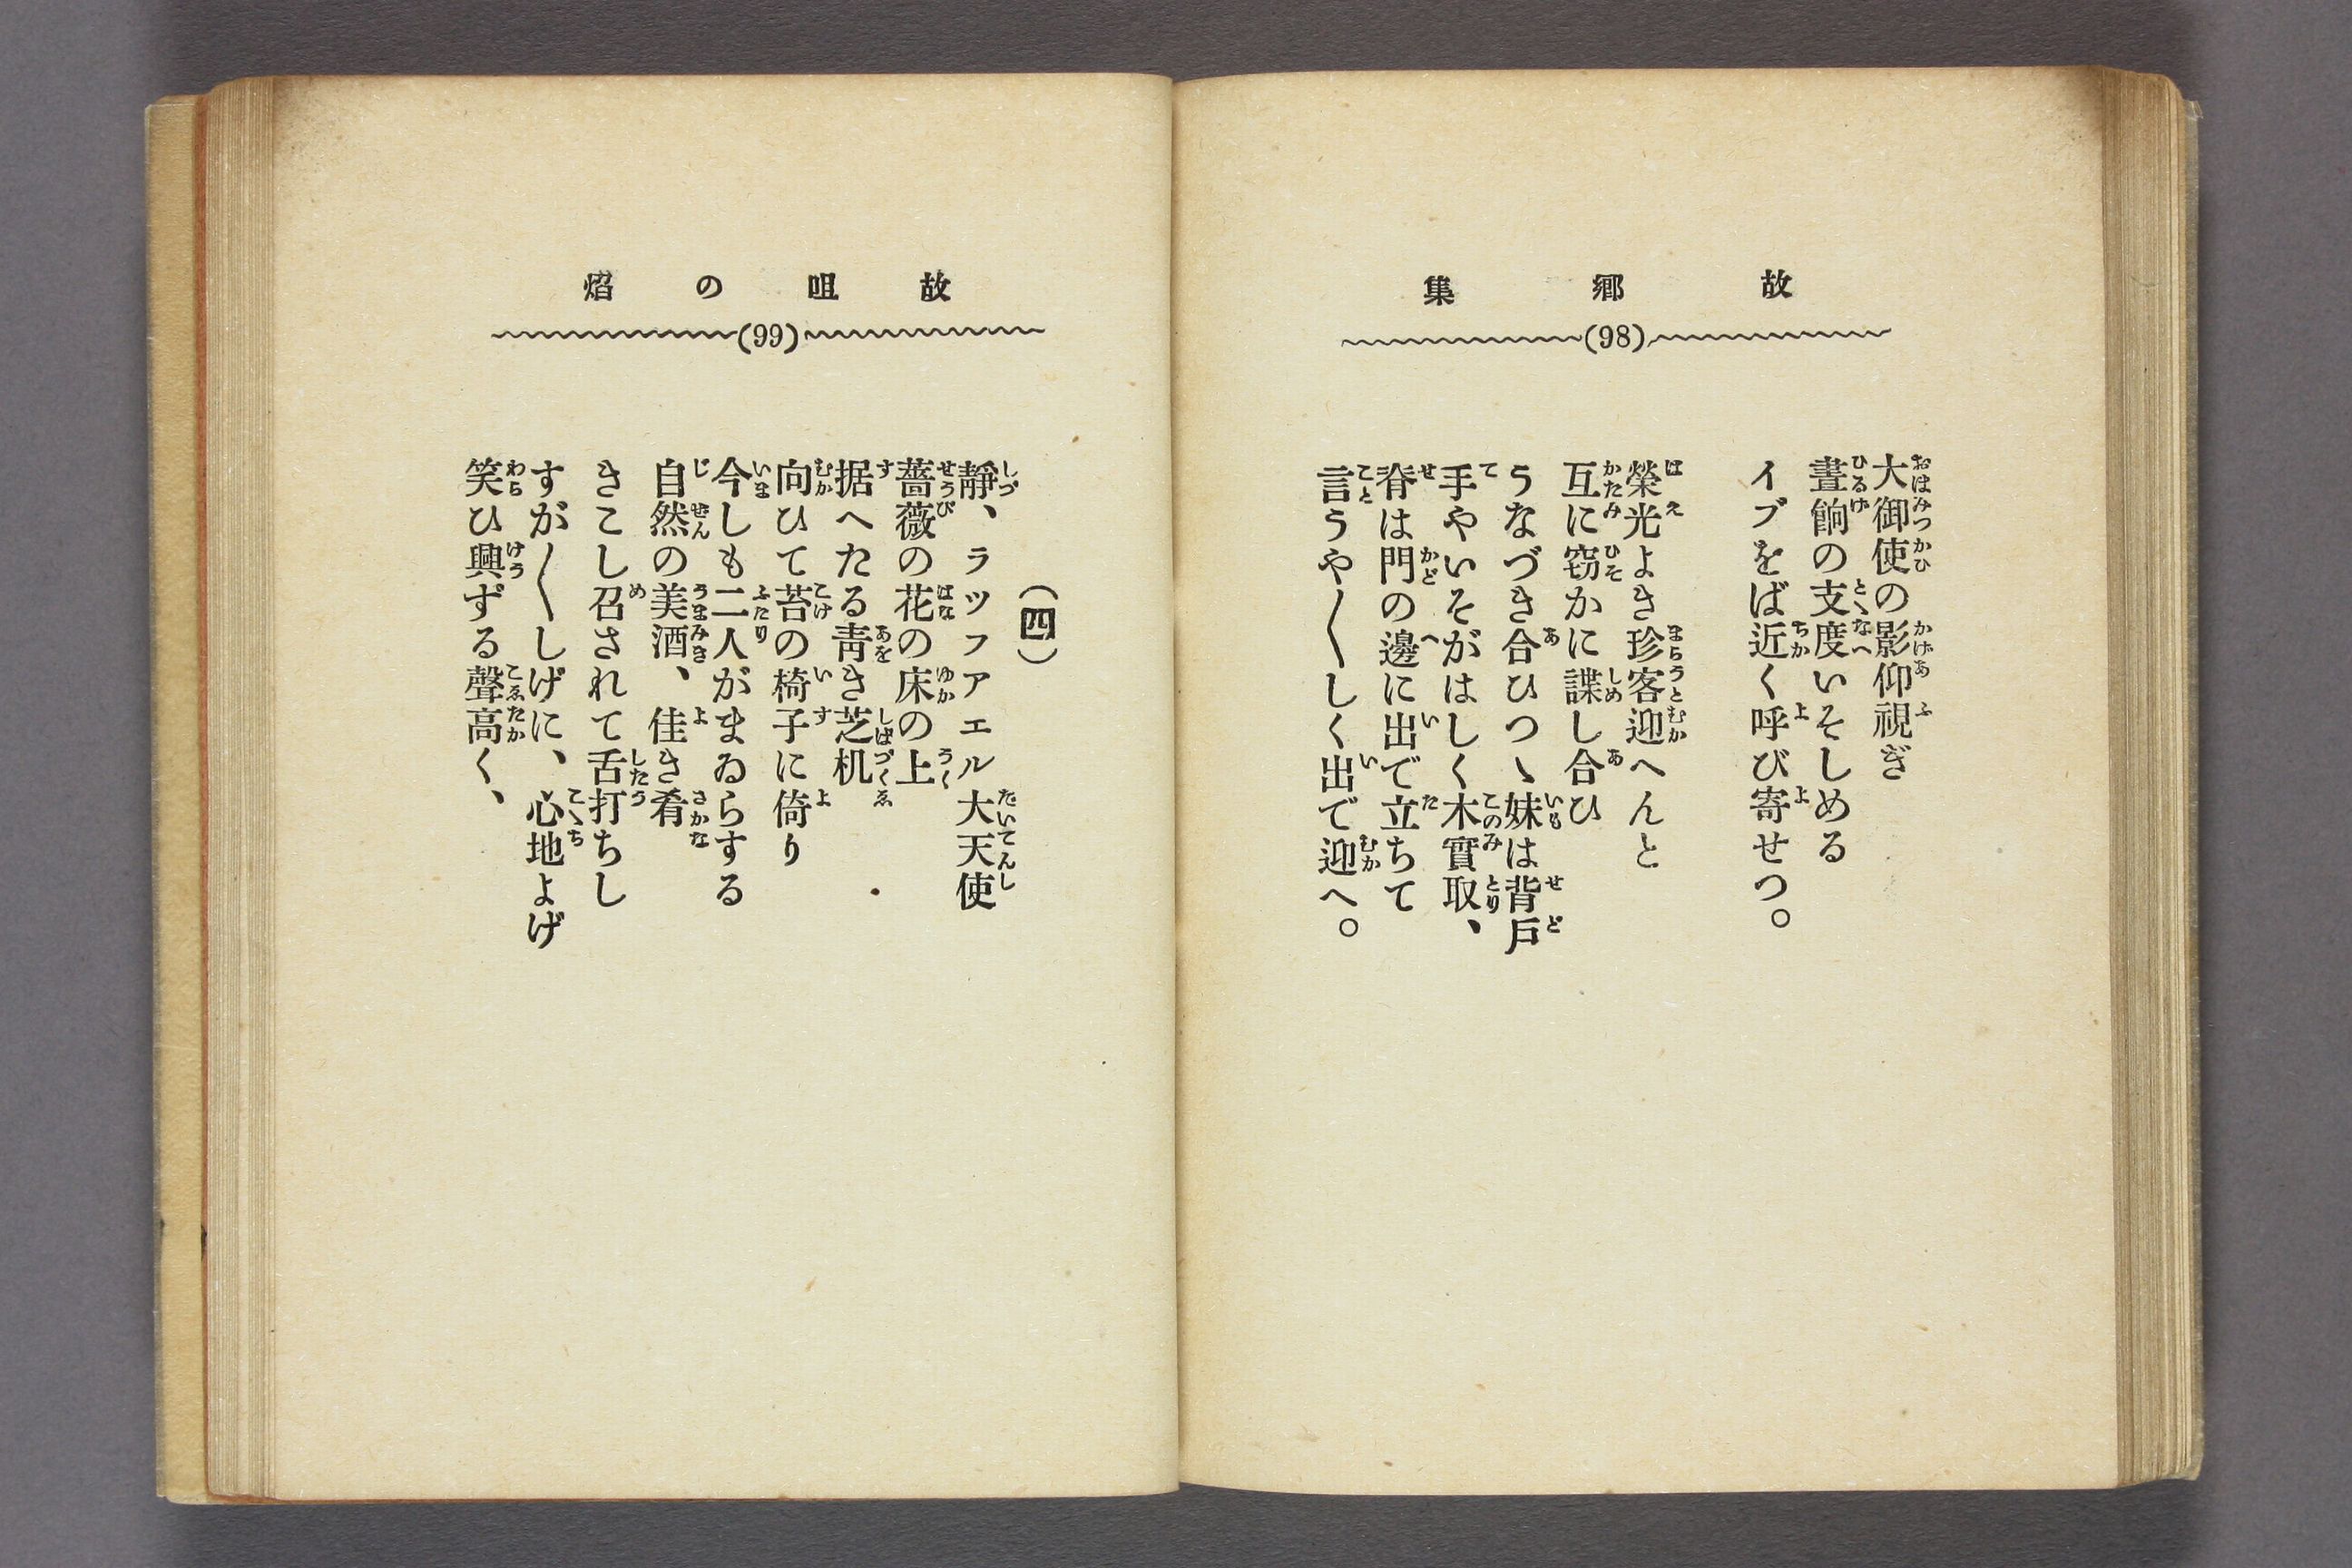 故郷集
(98)
大御使の影仰視ぎ
晝餉の支度いそしめる
イブをば近く呼び寄せつ。
榮光よき珍客迎へんと
互に窃かに諜し合ひ
うなづき合ひつゝ妹は背戶
手やいそがはしく木實取、
脊は門の邊に出で立ちて
言うや〳〵しく出で迎へ。
故咀の焰
(99)
(四)
靜、ラツフアエル大天使
薔薇の花の床の上
据へたる靑き芝机
向ひて苔の椅子に倚り
今しも二人がまゐらする
自然の美酒、佳き肴
きこし召されて舌打ちし
すが〳〵しげに、心地よげ
笑ひ興ずる聲高く、